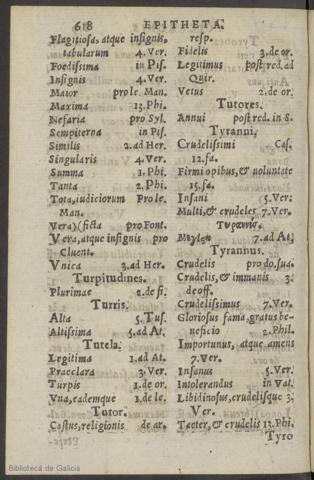 618 EPITHETA.
Flagitiosa, atque insignis,
tabularum 4. Ver.
Foedissima in Pis.
Insignis 4. Ver.
Maior pro le. Man.
Maxima 13. Phi.
Nefaria pro Syl.
Sempiterna in Pis.
Similis 2. ad Her.
Singularis 4. Ver.
Summa 1. Phi.
Tanta 2. Phi.
Tota, iudiciorum Pro le.
Man.
Vera)(ficta pro Font.
Vera, atque insignis pro
Cluent.
Vnica 3. ad Her.
Turpitudines.
Plurimae 2. de fi.
Turris.
Alta 5. Tus.
Altissima 5. ad At;
Tutela.
Legitima 1. ad At.
Praeclara 3. Ver.
Turpis 1. de or.
Vna, eademque 1. de le.
Tutor.
Castus, religionis de ar.
resp.
Fidelis 3. de or.
Legitimus post red. ad
Quir.
Vetus 2. de or.
Tutores.
Annui post red. in S.
Tyranni,
Crudelissimi Cas.
12. fa.
Firmi opibus, & uoluntate
15. fa.
Insani 5. Ver:
Multi, & crudeles 7. Ver.
7. ad At;
Tyrannus.
Crudelis pro do. sua.
Crudelis, & immanis 3.
de off.
Crudelissimus 7. Ver.
Gloriosus fama, gratus be-
neficio 2. Phil.
Importunus, atque amens
7. Ver.
Insanus 5. Ver.
Intolerandus in Vat.
Libidinosus, crudelisque 3.
Ver.
Taeter, & crudelis 13. Phi.
Tyro
Biblioteca de Galicia